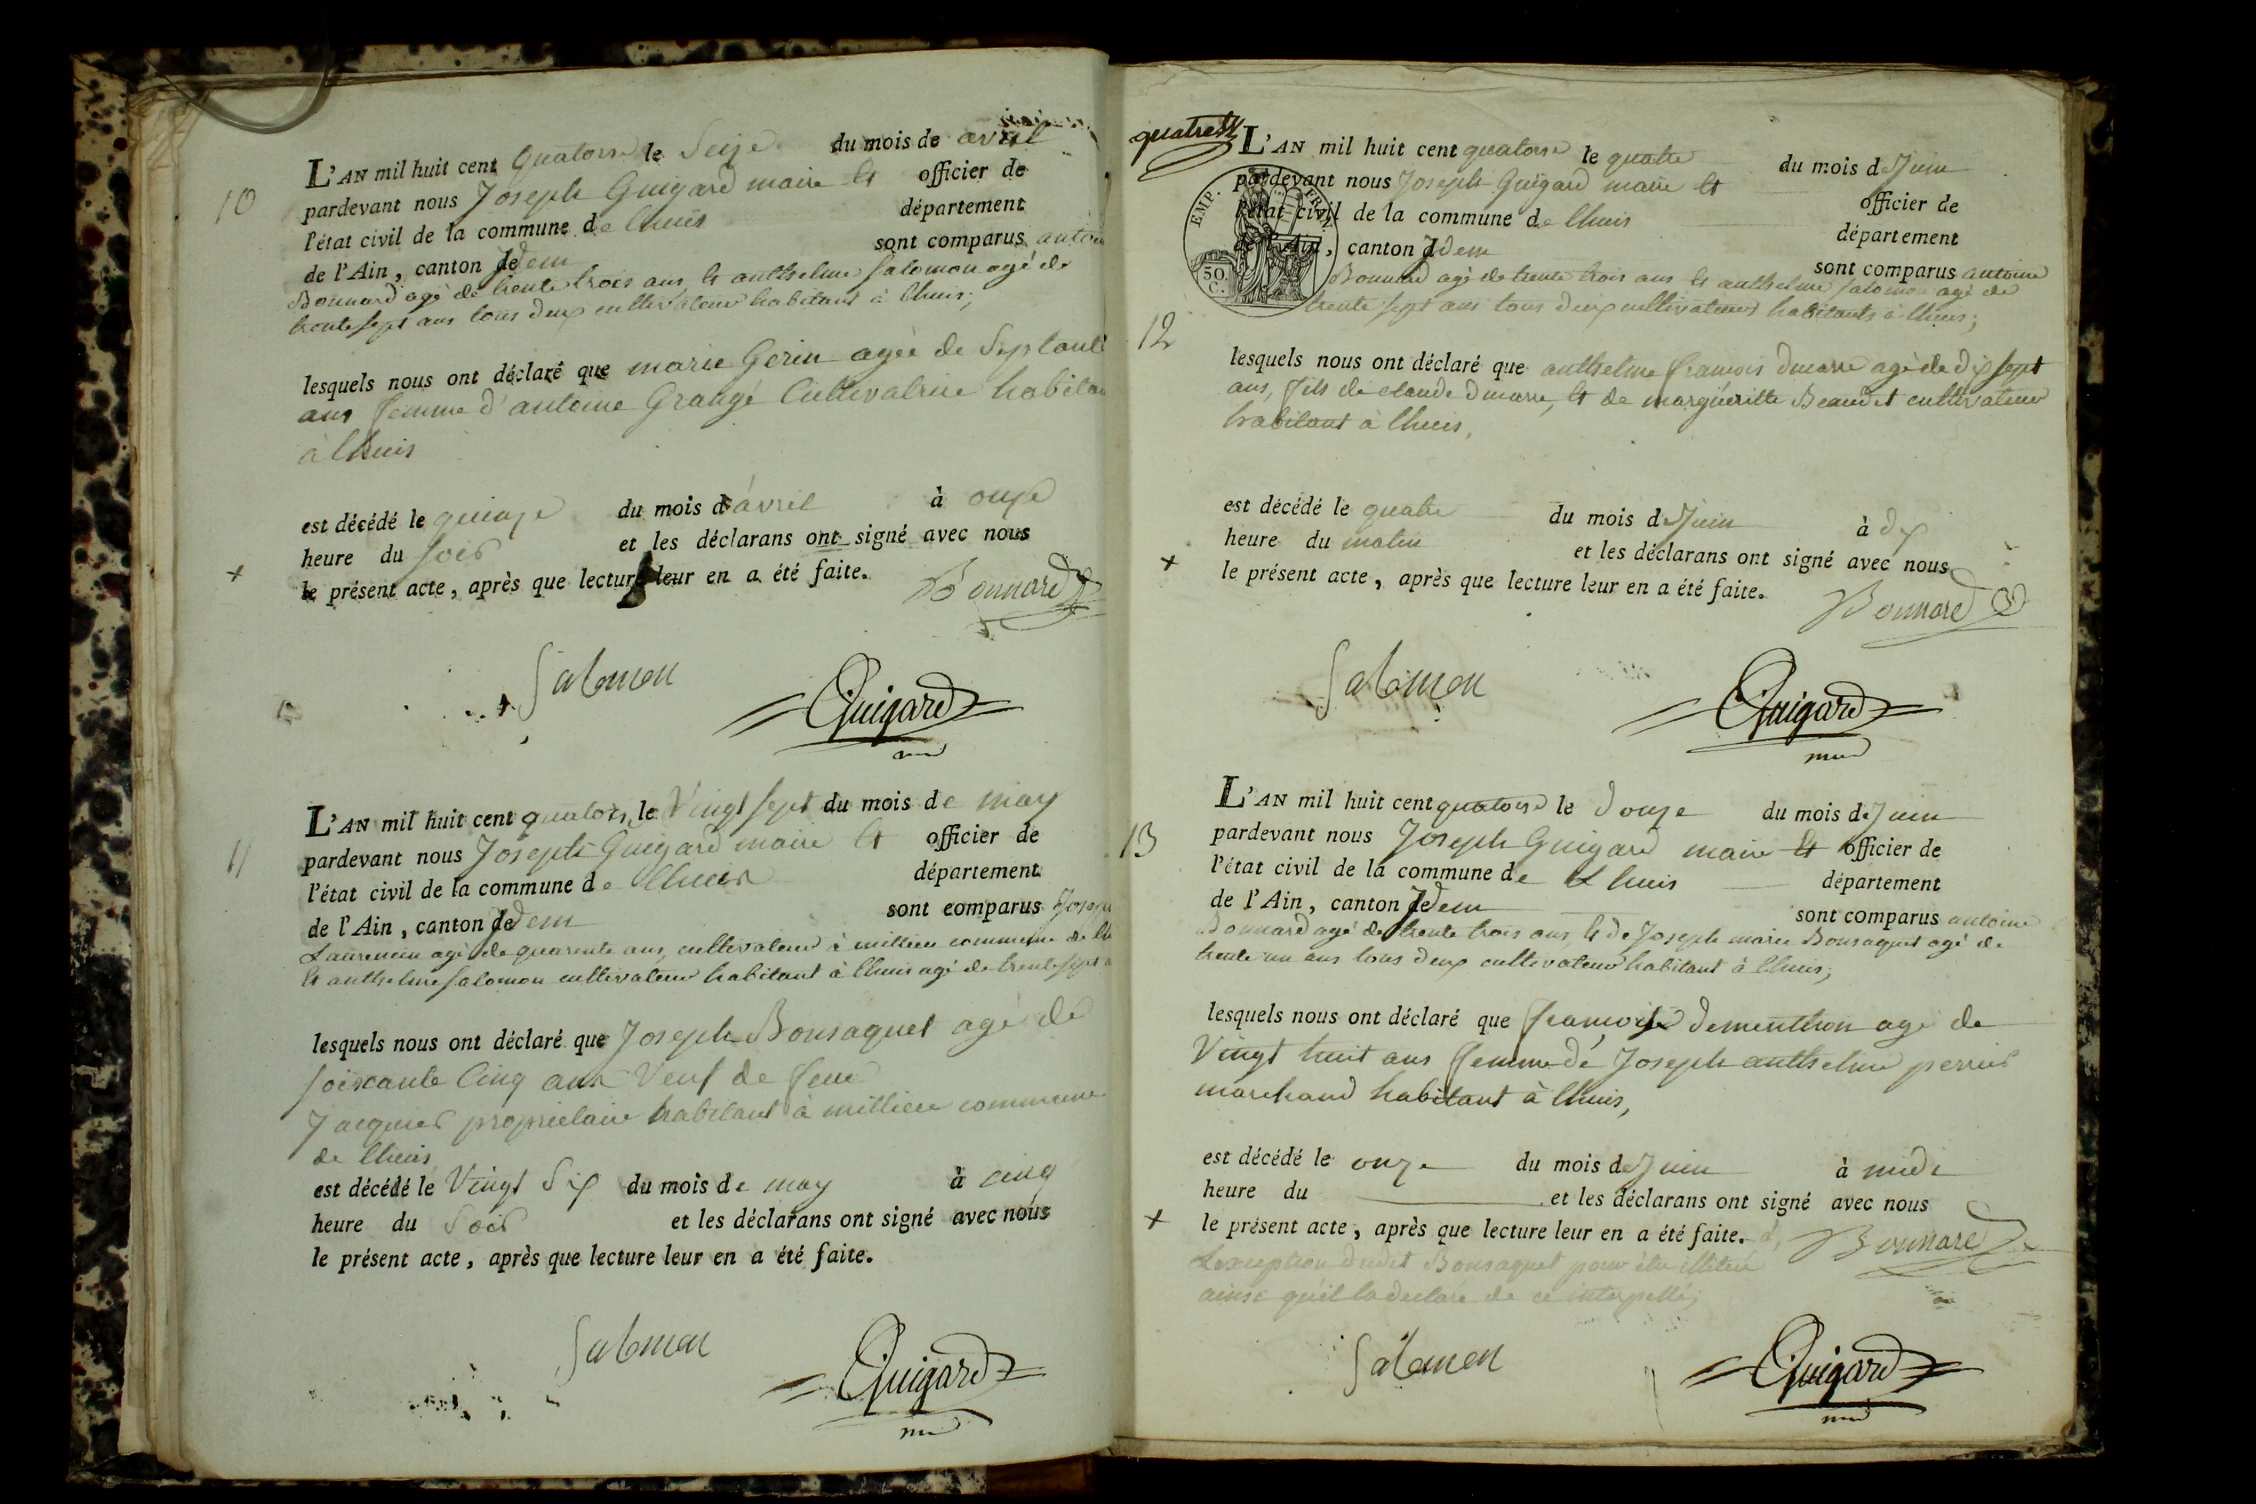 10
L'AN mil huit cent quatorze le Seize du mois de avril
pardevant nous Joseph Guigard maire et officier de
l'état civil de la commune de lhuis département
de l'Ain, canton Idem sont comparus antoi
Bonnard agé de trente trois ans, et anthelme Salomon agé de
trente sept ans tous deux cultivateur habitant à lhuis;
lesquels nous ont déclaré que marie Gerin agée de Septante
ans femme d'antoine Grangé Cultivatrice habitan
à lhuis
est décédé le quinze du mois d'avril à onze
heure du soir et les déclarans ont signé avec nous
le présent acte, après que lecture leur en a été faite. Bonnard
Salomon Guigard
11
L'AN mil huit cent quatorz le Vingt sept du mois de may
pardevant nous Joseph Guigard maire et officier de
l'état civil de la commune de lhuis département
de l'Ain, canton Idem sont comparus Joseph
Laurencin agé de quarente ans, cultivateur à millieu commune de lh
et anthelme Salomon cultivateur habitant à lhuis agé de trente sept a
lesquels nous ont déclaré que Joseph Bonsaquet agé de
soixante Cinq ans Veuf de feue
Jacquier propriétaire habitant à millieu commune
de lhuis
est décédé le Vingt Six du mois de may à cinq
heure du Soir et les déclarans ont signé avec nous
le présent acte, après que lecture leur en a été faite.
Salomon Guigard
quatre
EMP. FRAN.
50. C.
12
L'AN mil huit cent quatorze le quatre du mois de Juin
pardevant nous Joseph Guigard maire et officier de
l'état civil de la commune de lhuis département
de l'Ain, canton Idem sont comparus antoine
Bonnard agé de trente trois ans et anthelme Salomon agé de
trente sept ans tous deux cultivateurs habitants à lhuis;
lesquels nous ont déclaré que anthelme françois dmarre agé de dix sept
ans, fils de claude Dmarre, et de marguéritte Beaudet cultivateur
habitant à lhuis,
est décédé le quatre du mois de Juin à dix
heure du matin et les déclarans ont signé avec nous
le présent acte, après que lecture leur en a été faite. Bonnard
Salomon Guigard
13
L'AN mil huit cent quatorze le douze du mois de Juin
pardevant nous Joseph Guigard maire et officier de
l'état civil de la commune de Lhuis département
de l'Ain, canton Idem sont comparus antoine
Bonnard agé de trente trois ans, et de Joseph marie Bonsaquet agé de
trente un ans tous deux cultivateur habitant à lhuis;
lesquels nous ont déclaré que françoise dementhon agé de
Vingt huit ans femme de Joseph anthelme perrier
marchand habitant à lhuis,
est décédé le onze du mois de Juin à midi
heure du et les déclarans ont signé avec nous
le présent acte, après que lecture leur en a été faite. à, Bonnard
Lexception dudit Bonsaquet pour être illiteré
ainsi qu'il la declare de ce interpellé;
Salomon Guigard